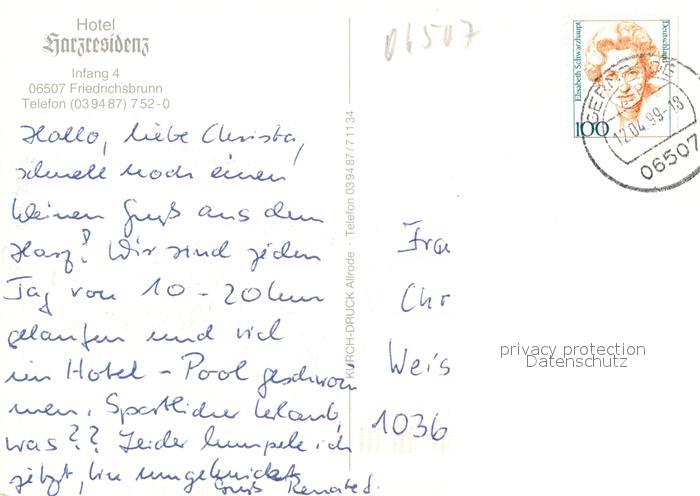 Hotel
Harzresidenz
Infang 4
06507 Friedrichsbrunn
Telefon (039487) 752-0
Hallo, liebe Christa,
schnell noch einen
kleinen Gruß aus dem
Harz! Wir sind jeden
Tag von 10 - 20 km
gelaufen und viel
im Hotel - Pool geschwom
men. Sportlicher Urlaub,
was?? Leider humpele ich
jetzt, bin umgeknickt.
Gruß Renate
KÜRCH-DRUCK Allrode · Telefon 039487/71134
06507
Elisabeth Schwarzhaupt
Deutschland
100
12.04.99-18
06507
Frau
Chr
Weis
1036
privacy protection
Datenschutz